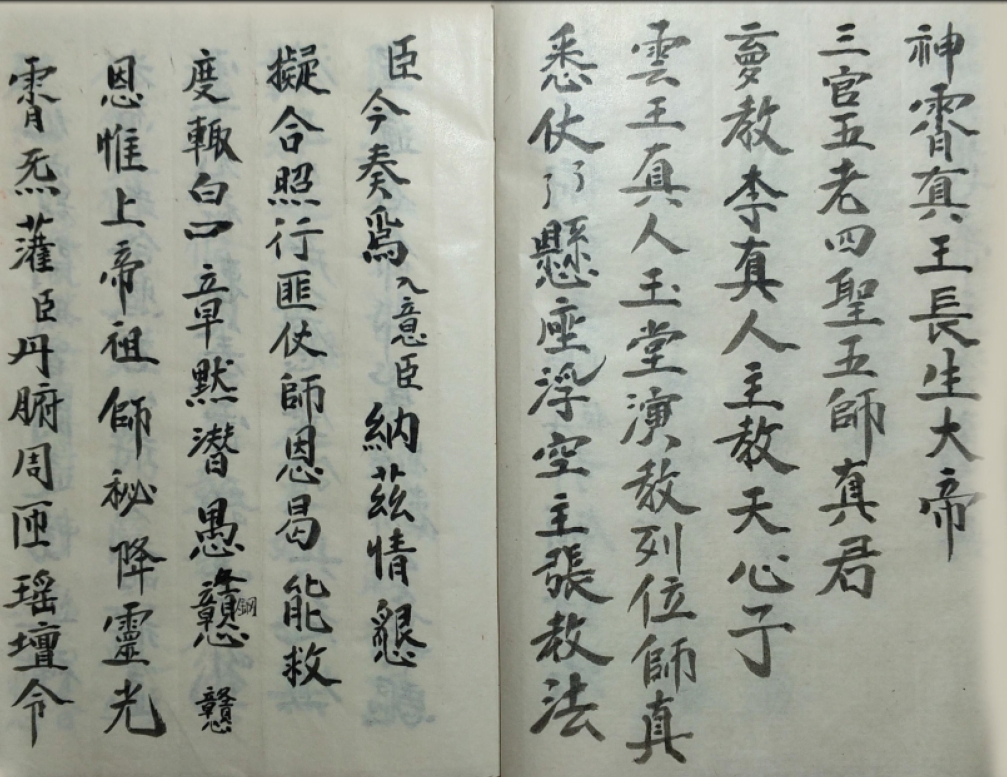 神霄真王長生大帝
三官五老四聖五師真君
夢教李真人主教天心子
雲王真人玉堂演教列位師真
悉仗了了懸座浮空主張教法
臣
今奏爲入意臣納茲情懇
擬合照行匪仗師恩曷能救
度輙白一章默潛愚戇
恩惟上帝祖師秘降靈光
霄炁灌臣丹腑周匝瑶壇令